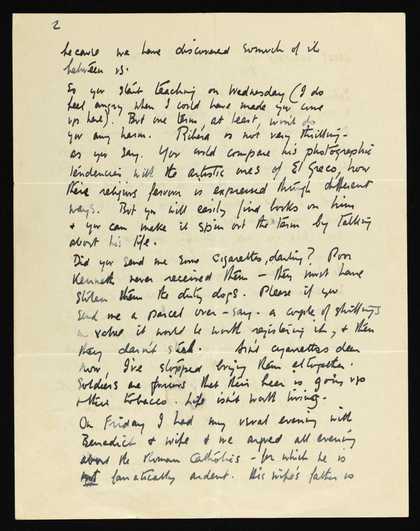 2
because we have discovered so much of it
between us.
So you start teaching on Wednesday (I do
feel angry when I could have made you come
up here). But one term, at least, won't do
you any harm. Ribera is not very thrilling -
as you say. You could compare his photographic
tendencies with the artistic ones of El Greco, how
their religious fervour is expressed through different
ways. But you will easily find books on him
& you can make it spin out the term by talking
about his life.
Did you send me some cigarettes, darling? Poor
Kenneth never received them - they must have
stolen them the dirty dogs. Please if you
send me a parcel over - say - a couple of shillings
in value it would be worth registering it, & then
they daren't steal. Aren't cigarettes dear
now, I've stopped buying them altogether.
Soldiers are furious that their beer is going up
& their tobacco. Life isn't worth living.
On Friday I had my usual evening with
Benedict & wife & we argued all evening
about the Roman Catholics - for which he is
not fanatically ardent. His wife's father is